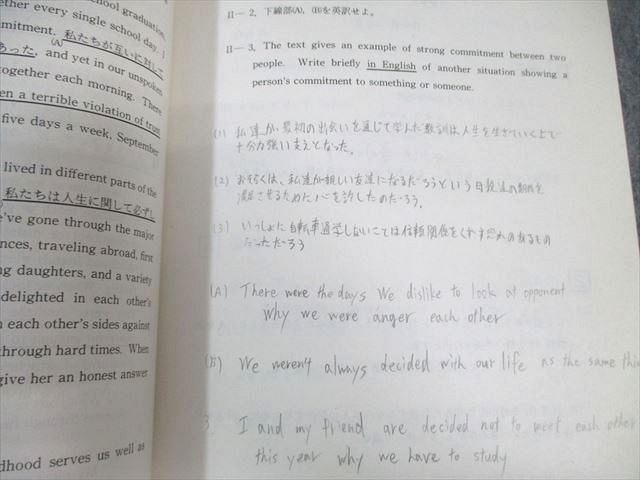 school graduation,
ther every single school day. I
mitment. 私たちが互いに対して
(A)
あった, and yet in our unspoken
together each morning. There
en a terrible violation of trust
five days a week, September
lived in different parts of the
私たちは人生に関して必ずし
've gone through the major
nces, traveling abroad, first
ng daughters, and a variety
delighted in each other's
n each other's sides against
through hard times. When
give her an honest answer
dhood serves us well as
II－2. 下線部(A), (B)を英訳せよ。
II－3. The text gives an example of strong commitment between two
people. Write briefly in English of another situation showing a
person's commitment to something or someone.
(1) 私達が最初の出会いを通じて学んだ教訓は人生を生きていく上で
十分力強い支えとなった。
(2) おそらくは、私達が親しい友達になるだろうという母親達の期待を
満足させるために心を許したのだろう。
(3) いっしょに自転車通学しないことは信頼関係をくずす恐れのあるもの
だっただろう
(A) There were the days We dislike to look at opponent
why we were anger each other
(B) We weren't always decided with our life as the same thin
3. I and my friend are decided not to meet each other
this year why we have to study